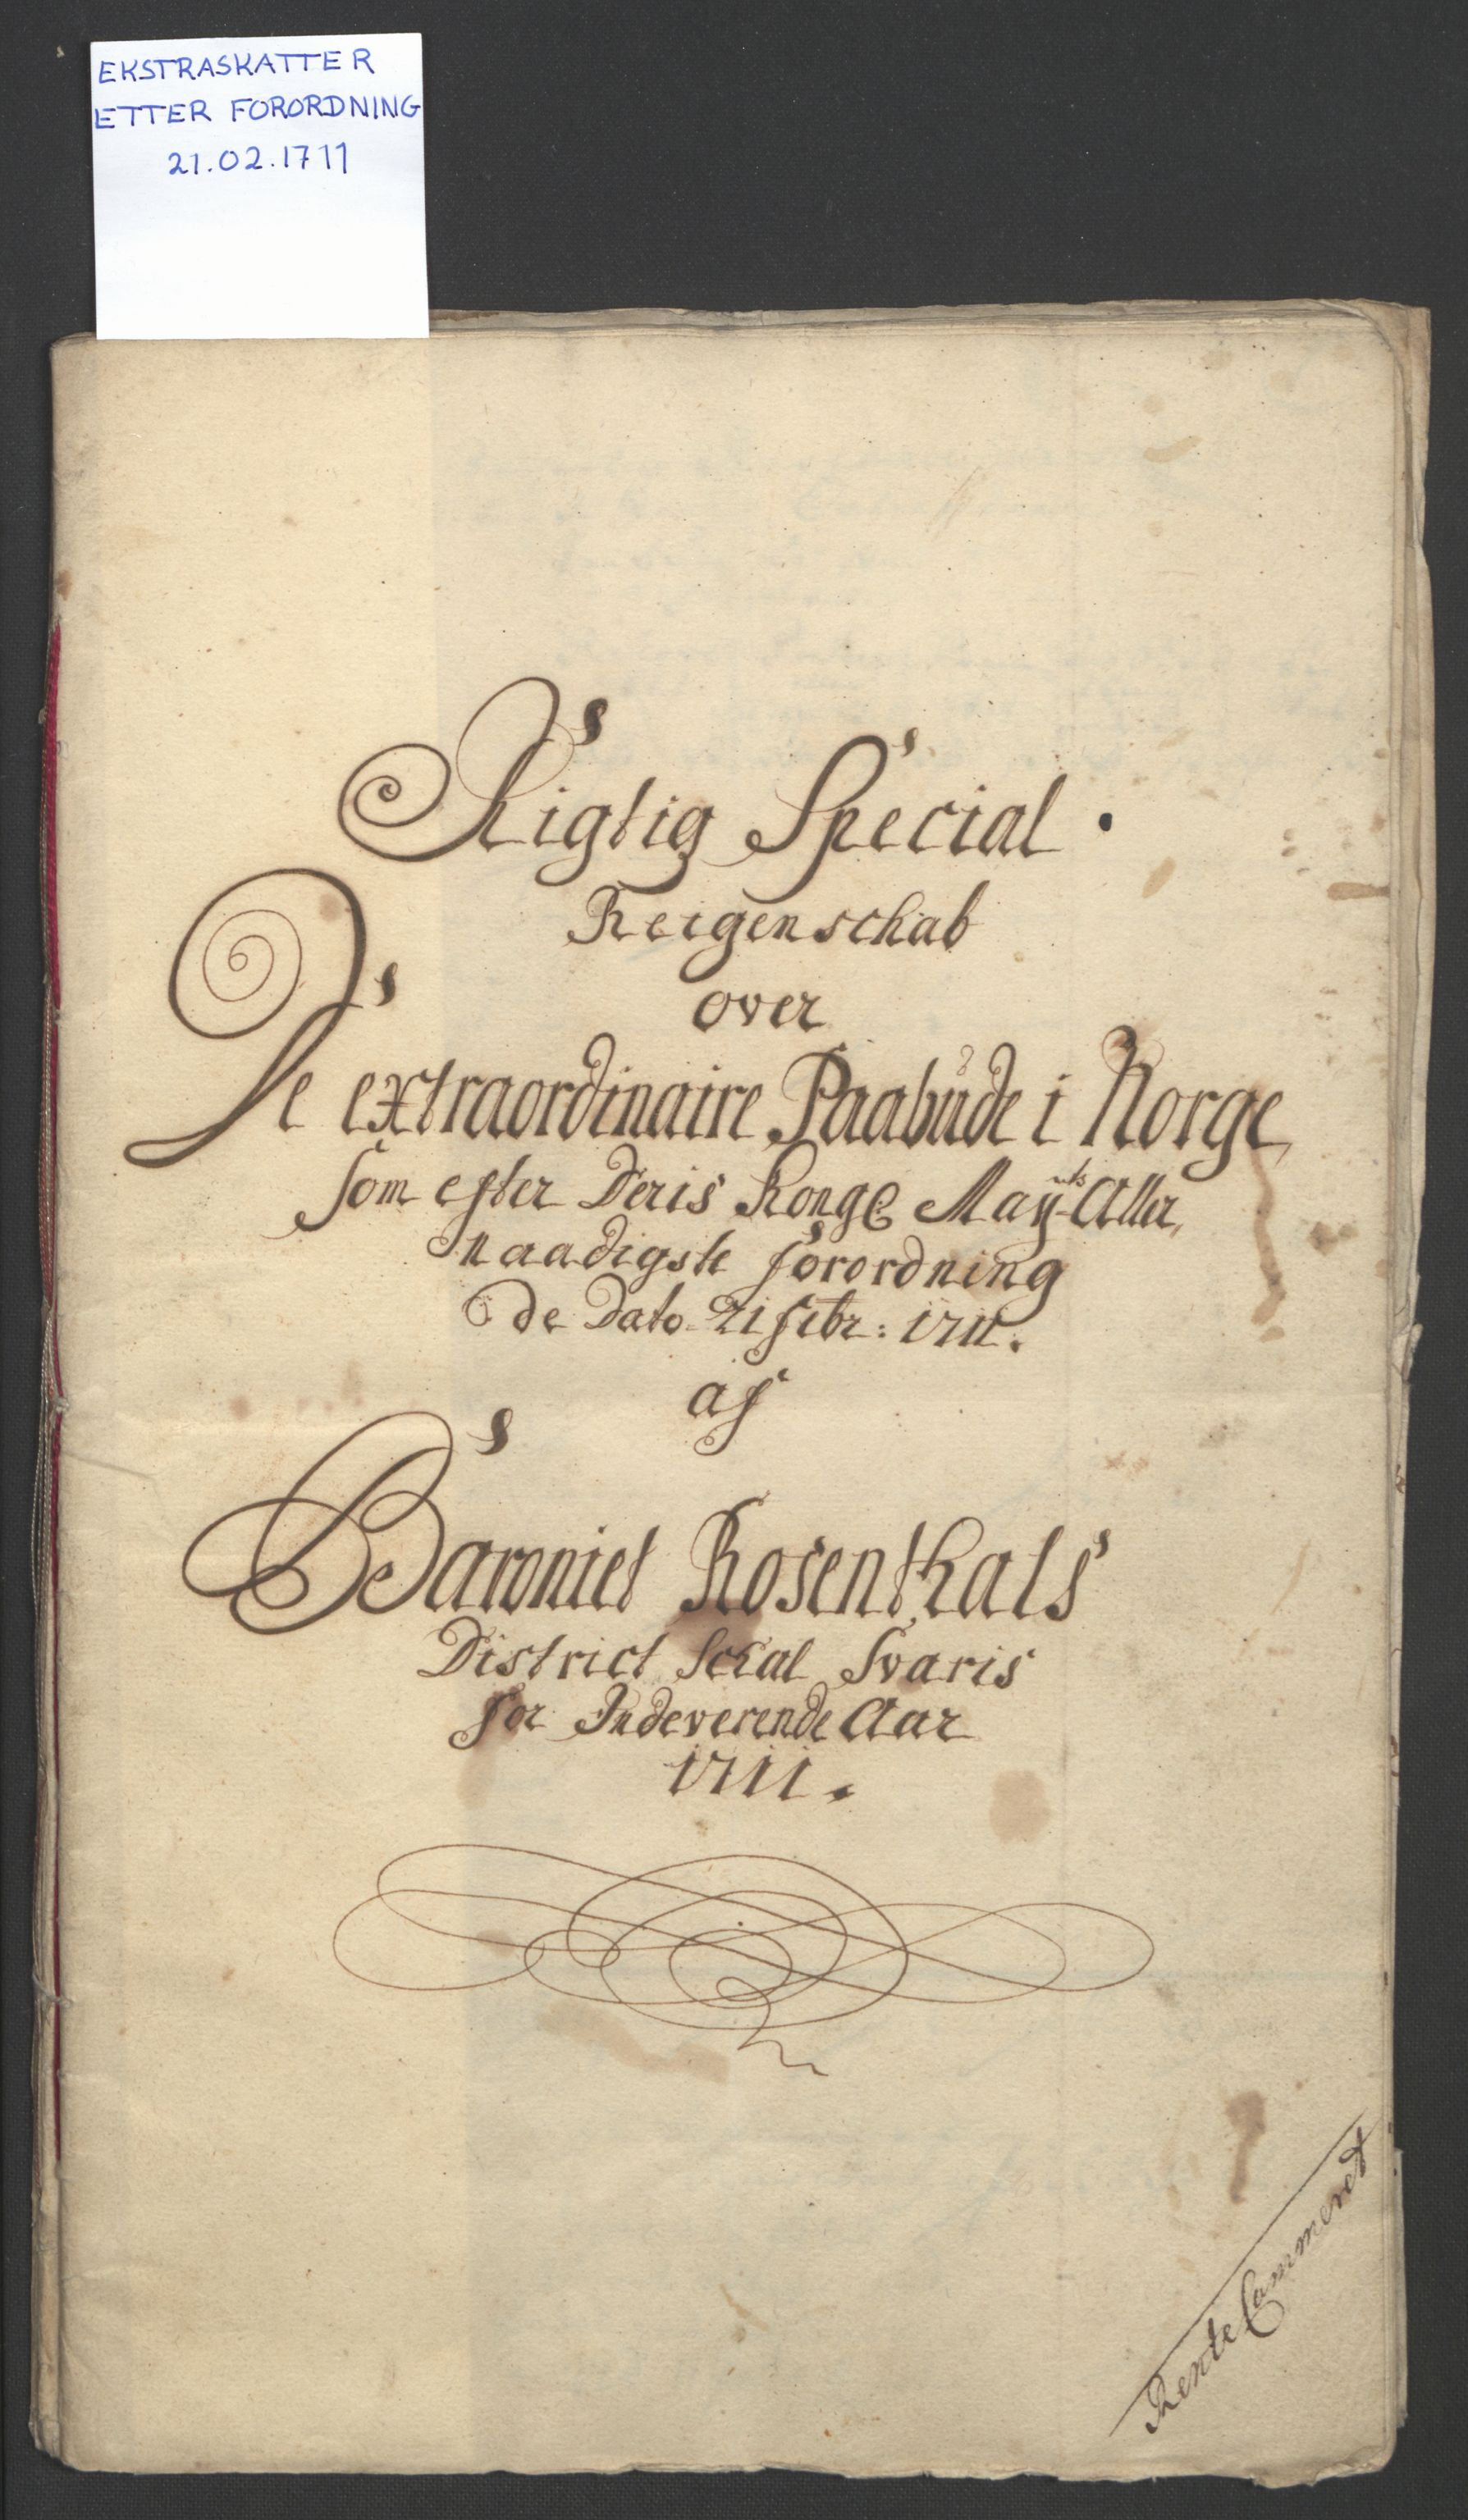 EKSTRASKATTER
ETTER FORORDNING
21.02.1711
Rigtig Special
Reigenschab
over
De extraordinaire Paabude i Norge
som efter Deris Konge Mayts Aller
naadigste forordning
de Dato 21 febr: 1711.
af
Baroniet Rosenthals
District Schal Svaris
for Indeverende Aar
1711.
Rente Cammeret